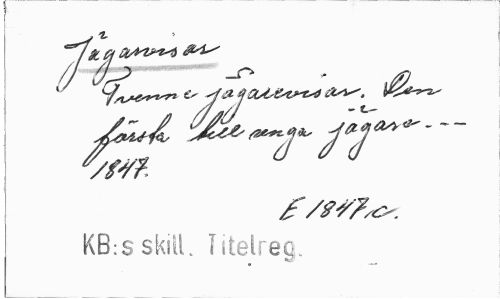 Jägarvisor
Tvenne jägarevisor. Den
första till unga jägare. ---
1847.
E 1847 c.
KB:s skill. Titelreg.